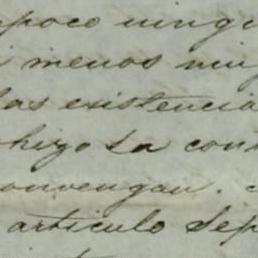 apoco ningu
i menos nin
las existencia
ohizo La cont
convengan.
articulo Sep